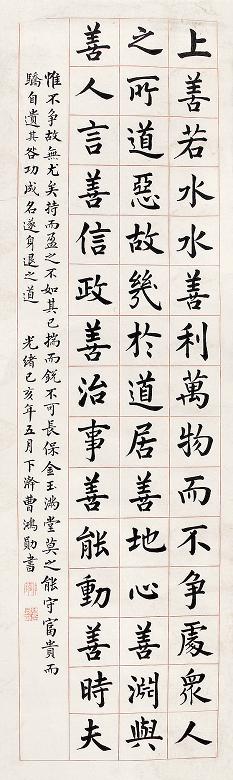 上善若水水善利萬物而不爭處衆人
之所道惡故幾於道居善地心善淵與
善人言善信政善治事善能動善時夫
惟不爭故無尤矣持而盈之不如其已揣而銳不可長保金玉滿堂莫之能守富貴而
驕自遺其咎功成名遂身退之道 光緒己亥年五月下澣曹鴻勛書